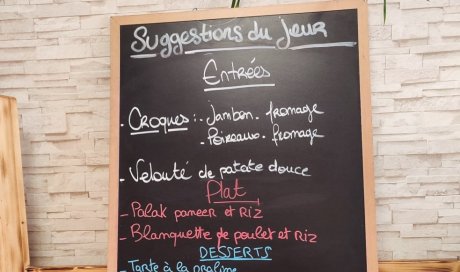 Suggestions du Jour
Entrées
- Croques :. Jambon. fromage
. Poireaux. fromage
- Velouté de patate douce
Plat
- Palak paneer et RIZ
- Blanquette de poulet et RIZ
DESSERTS
- Tarte à la praline